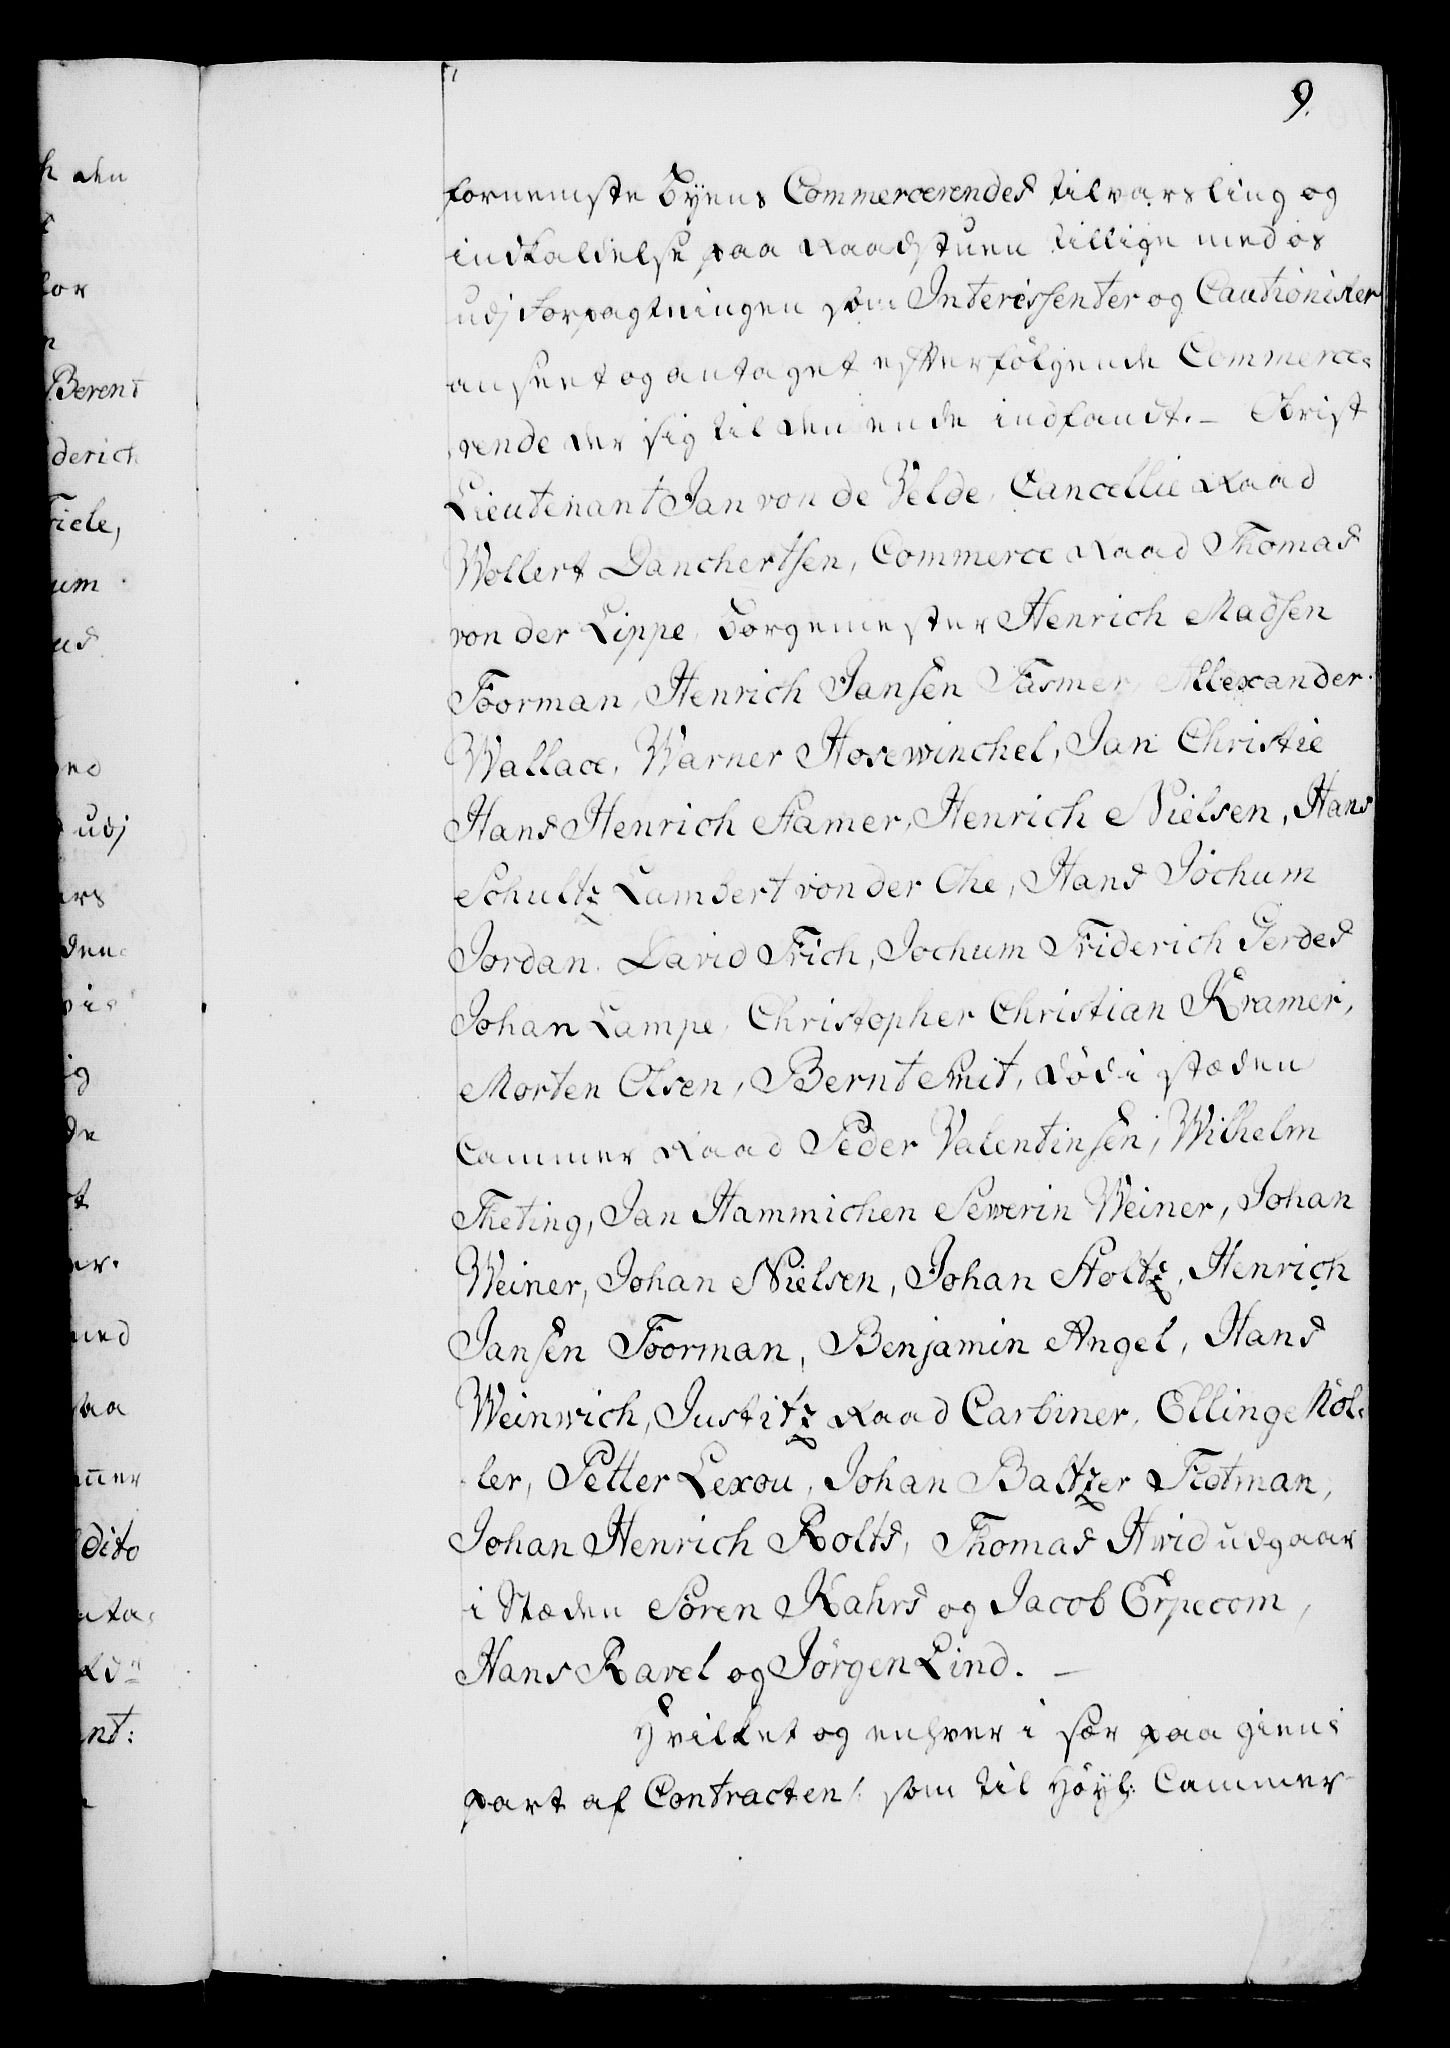 9.
fornemste Byens Commercerendes tilvarsling og
indkaldelse paa Raadstuen tillige med os
udj Forpagtningen som Interissenter og Cautionister
anseet og antaget efterfölgende Commerce-
rende der sig til den ende indfandt. – Obrist
Lieutenant Jan von de Velde, Cancellie Raad
Wollert Danchertsen, Commerce Raad Thomas
von der Lippe, Borgemester Henrich Madsen
Foorman, Henrich Jansen Fasmer, Allexander
Wallace, Warner Hosewinchel, Jan Christie
Hans Henrich Stamer, Henrich Nielsen, Hans
Schultz Lambert von der Ohe, Hans Jochum
Jordan. David Frich, Jochum Friderich Gerdes
Johan Lampe, Christopher Christian Kramer,
Morten Olsen, Bernt Smit, död i stæden
Cammer Raad Peder Valentinsen, Wilhelm
Theting, Jan Hammichen Severin Weiner, Johan
Weiner, Johan Nielsen, Johan Stoltz, Henrich
Jansen Foorman, Benjamin Angel, Hans
Weinwich, Justitz Raad Carbiner, Ellinge Möl-
ler, Petter Lexou, Johan Baltzer Flotman,
Johan Henrich Rolts, Thomas Hvid udgaar
i Stæden Sören Kahrs og Jacob Erpecom,
Hans Ravel og Jörgen Lind. –
Hvilket og enhver i sær paa
part af Contracten /: som til Höyl: Cammer
den
for
Berent
derich
Fiele,
um
udj
dito